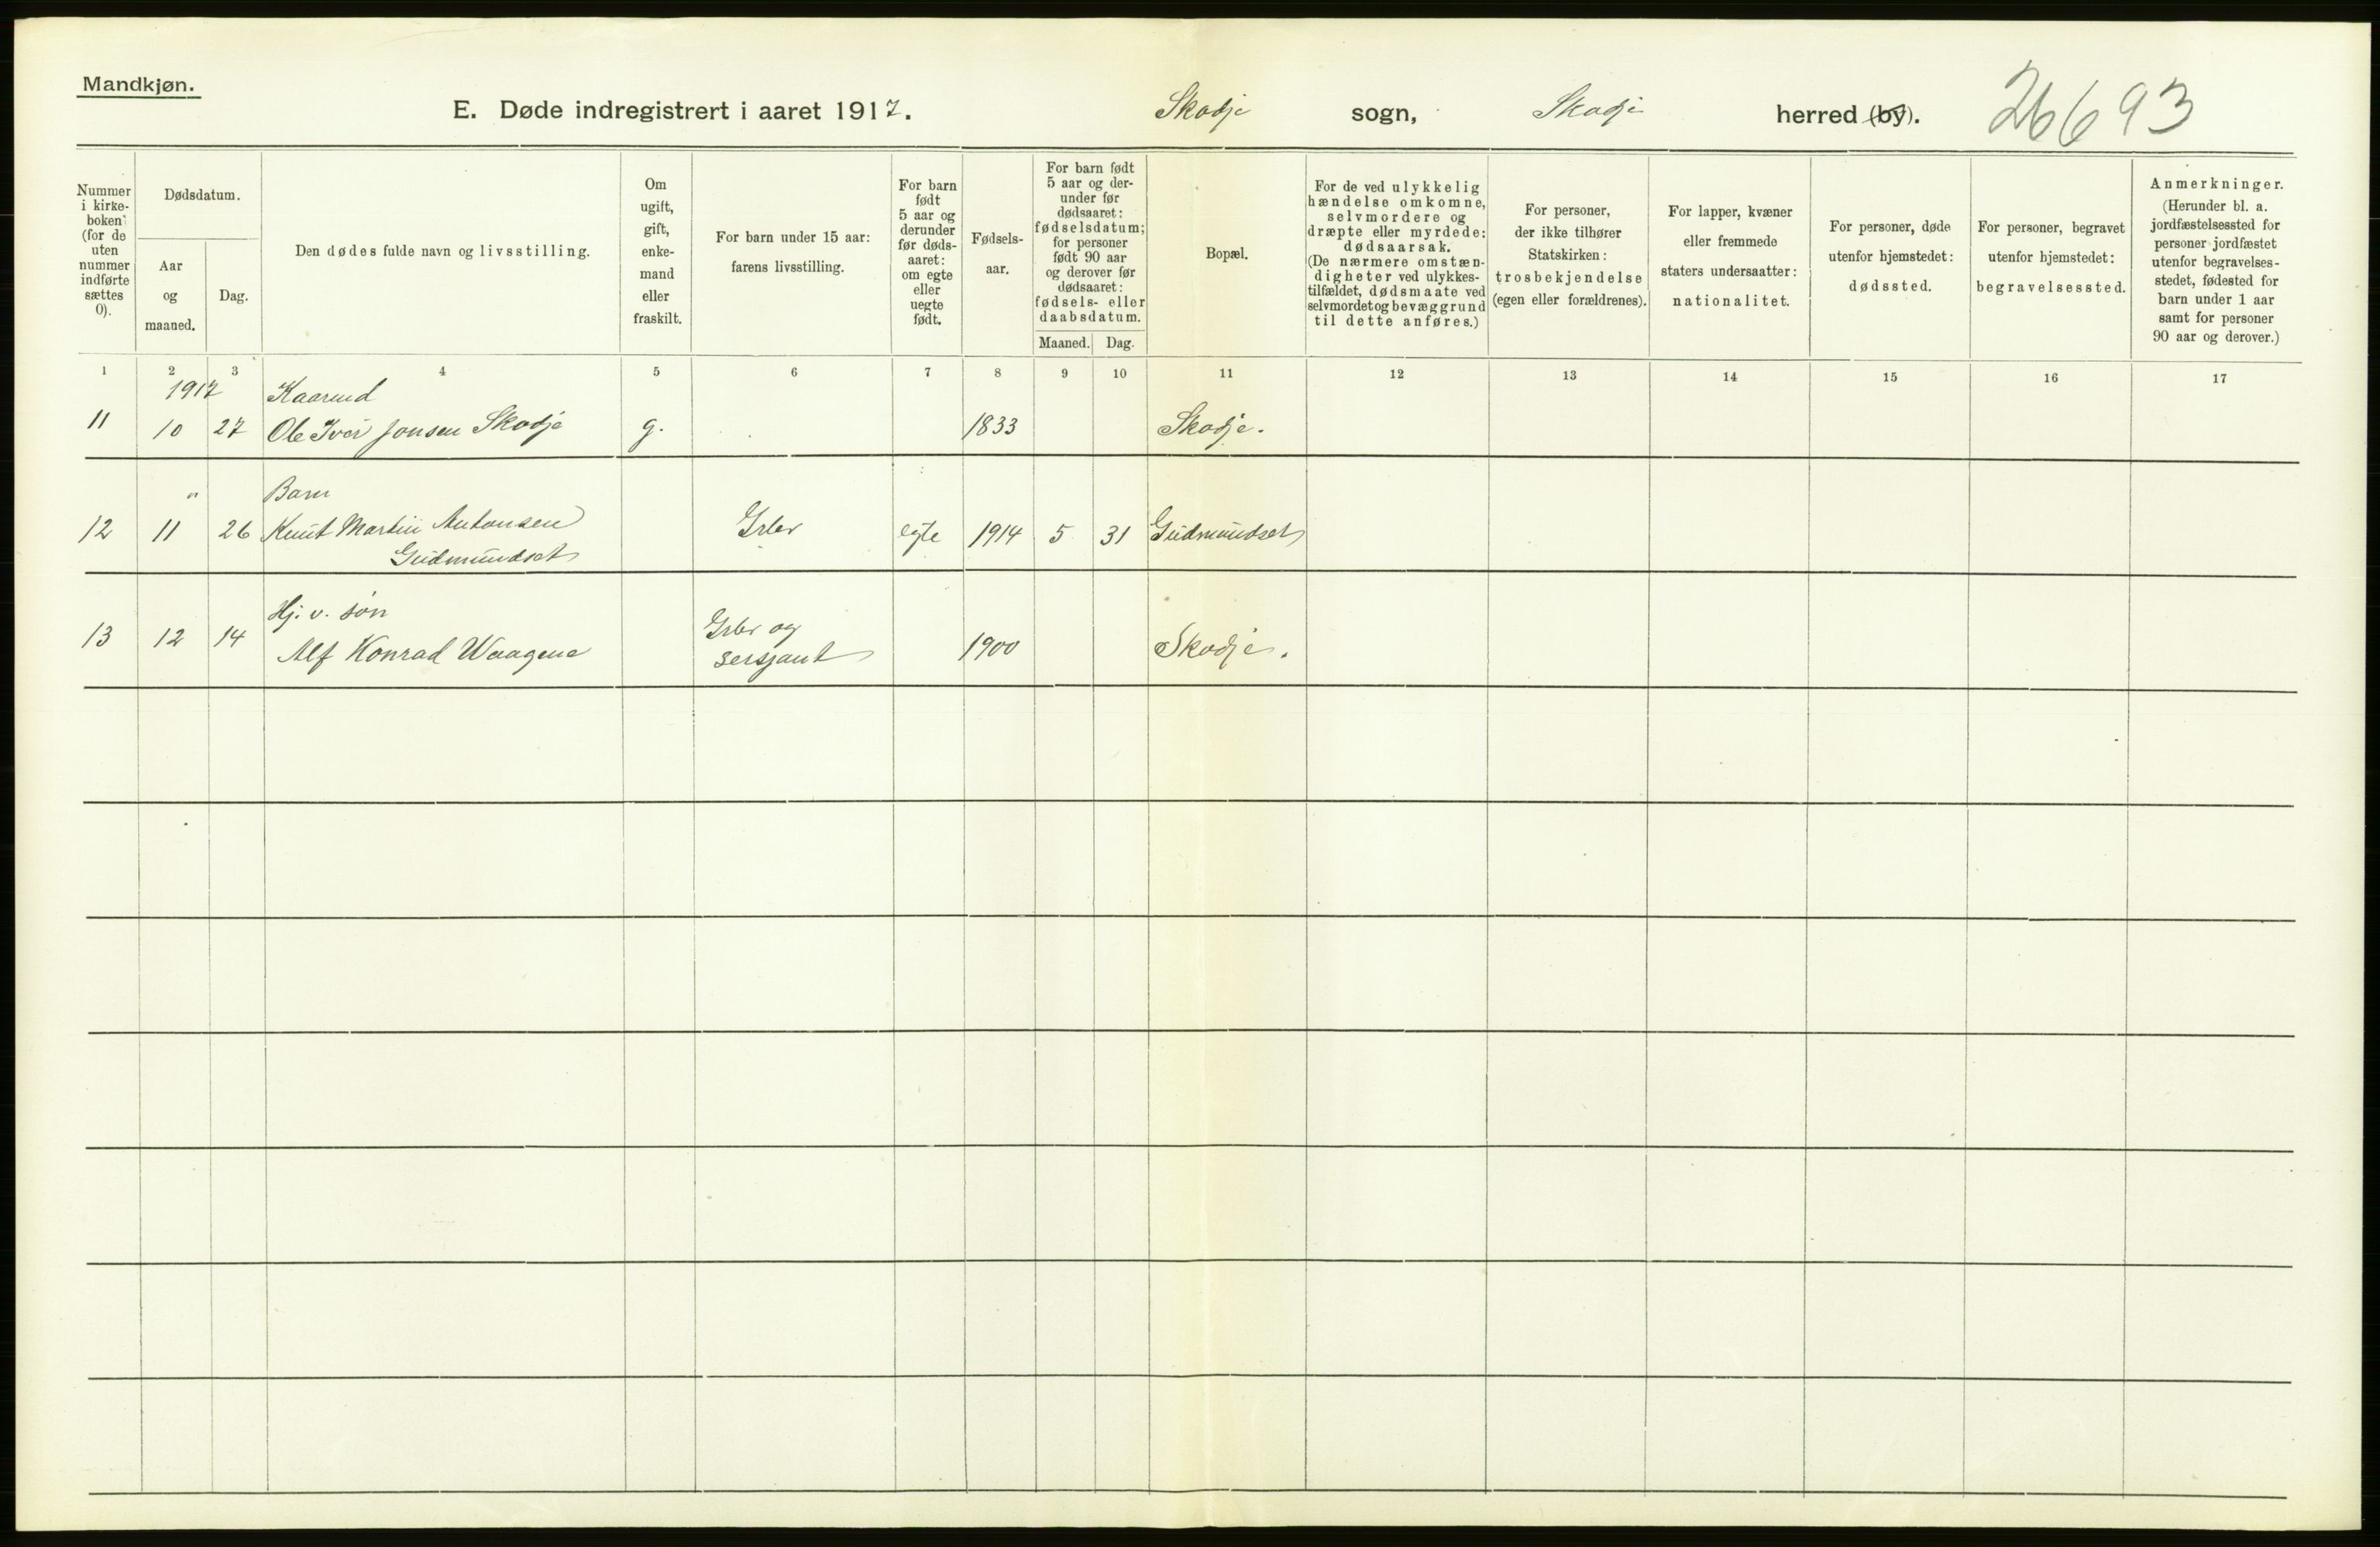 Mandkjøn.
E. Døde indregistrert i aaret 1917. Skodje sogn, Skodje herred (by). 26693
Nummer i kirke-boken (for de uten nummer indførte sættes 0).
Dødsdatum.
Aar og maaned.
Dag.
Den dødes fulde navn og livsstilling.
Om ugift, gift, enke-mand eller fraskilt.
For barn under 15 aar: farens livsstilling.
For barn født 5 aar og derunder før døds-aaret: om egte eller uegte født.
Fødsels-aar.
For barn født 5 aar og der-under før dødsaaret: fødselsdatum; for personer født 90 aar og derover før dødsaaret: fødsels- eller daabsdatum.
Maaned. Dag.
Bopæl.
For de ved ulykkelig hændelse omkomne, selvmordere og dræpte eller myrdede: dødsaarsak. (De nærmere omstæn-digheter ved ulykkes-tilfældet, dødsmaate ved selvmordet og bevæggrund til dette anføres.)
For personer, der ikke tilhører Statskirken: trosbekjendelse (egen eller forældrenes).
For lapper, kvæner eller fremmede staters undersaatter: nationalitet.
For personer, døde utenfor hjemstedet: dødssted.
For personer, begravet utenfor hjemstedet: begravelsessted.
Anmerkninger. (Herunder bl. a. jordfæstelsessted for personer jordfæstet utenfor begravelses-stedet, fødested for barn under 1 aar samt for personer 90 aar og derover.)
1 2 3 4 5 6 7 8 9 10 11 12 13 14 15 16 17
1917 Kaarmd
11 10 27 Ole Iver Jonsen Skodje g. 1833 Skodje.
" Barn
12 11 26 Knut Martin Antonsen Grbr egte 1914 5 31 Gudmundset
Gudmundset
Hj. v. søn Grbr og
13 12 14 Alf Konrad Waagene sersjant 1900 Skodje.